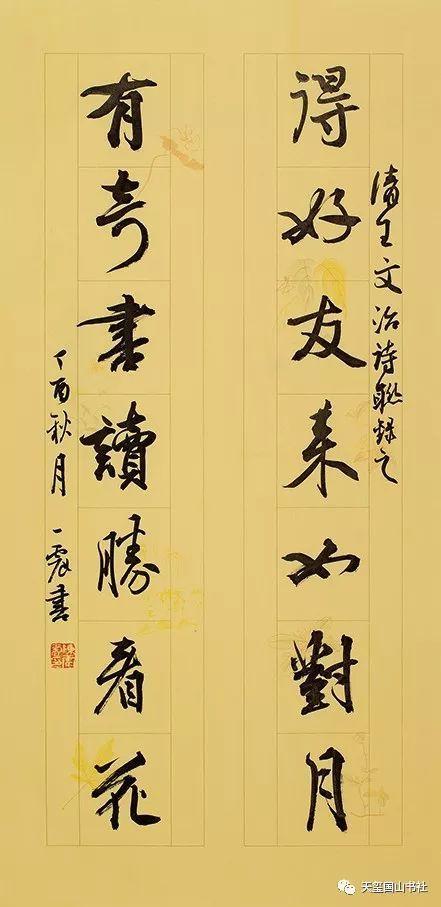 得好友来如對月
清王文治詩聯錄之
有奇書讀勝看花
丁酉秋月 一書
天玺国山书社